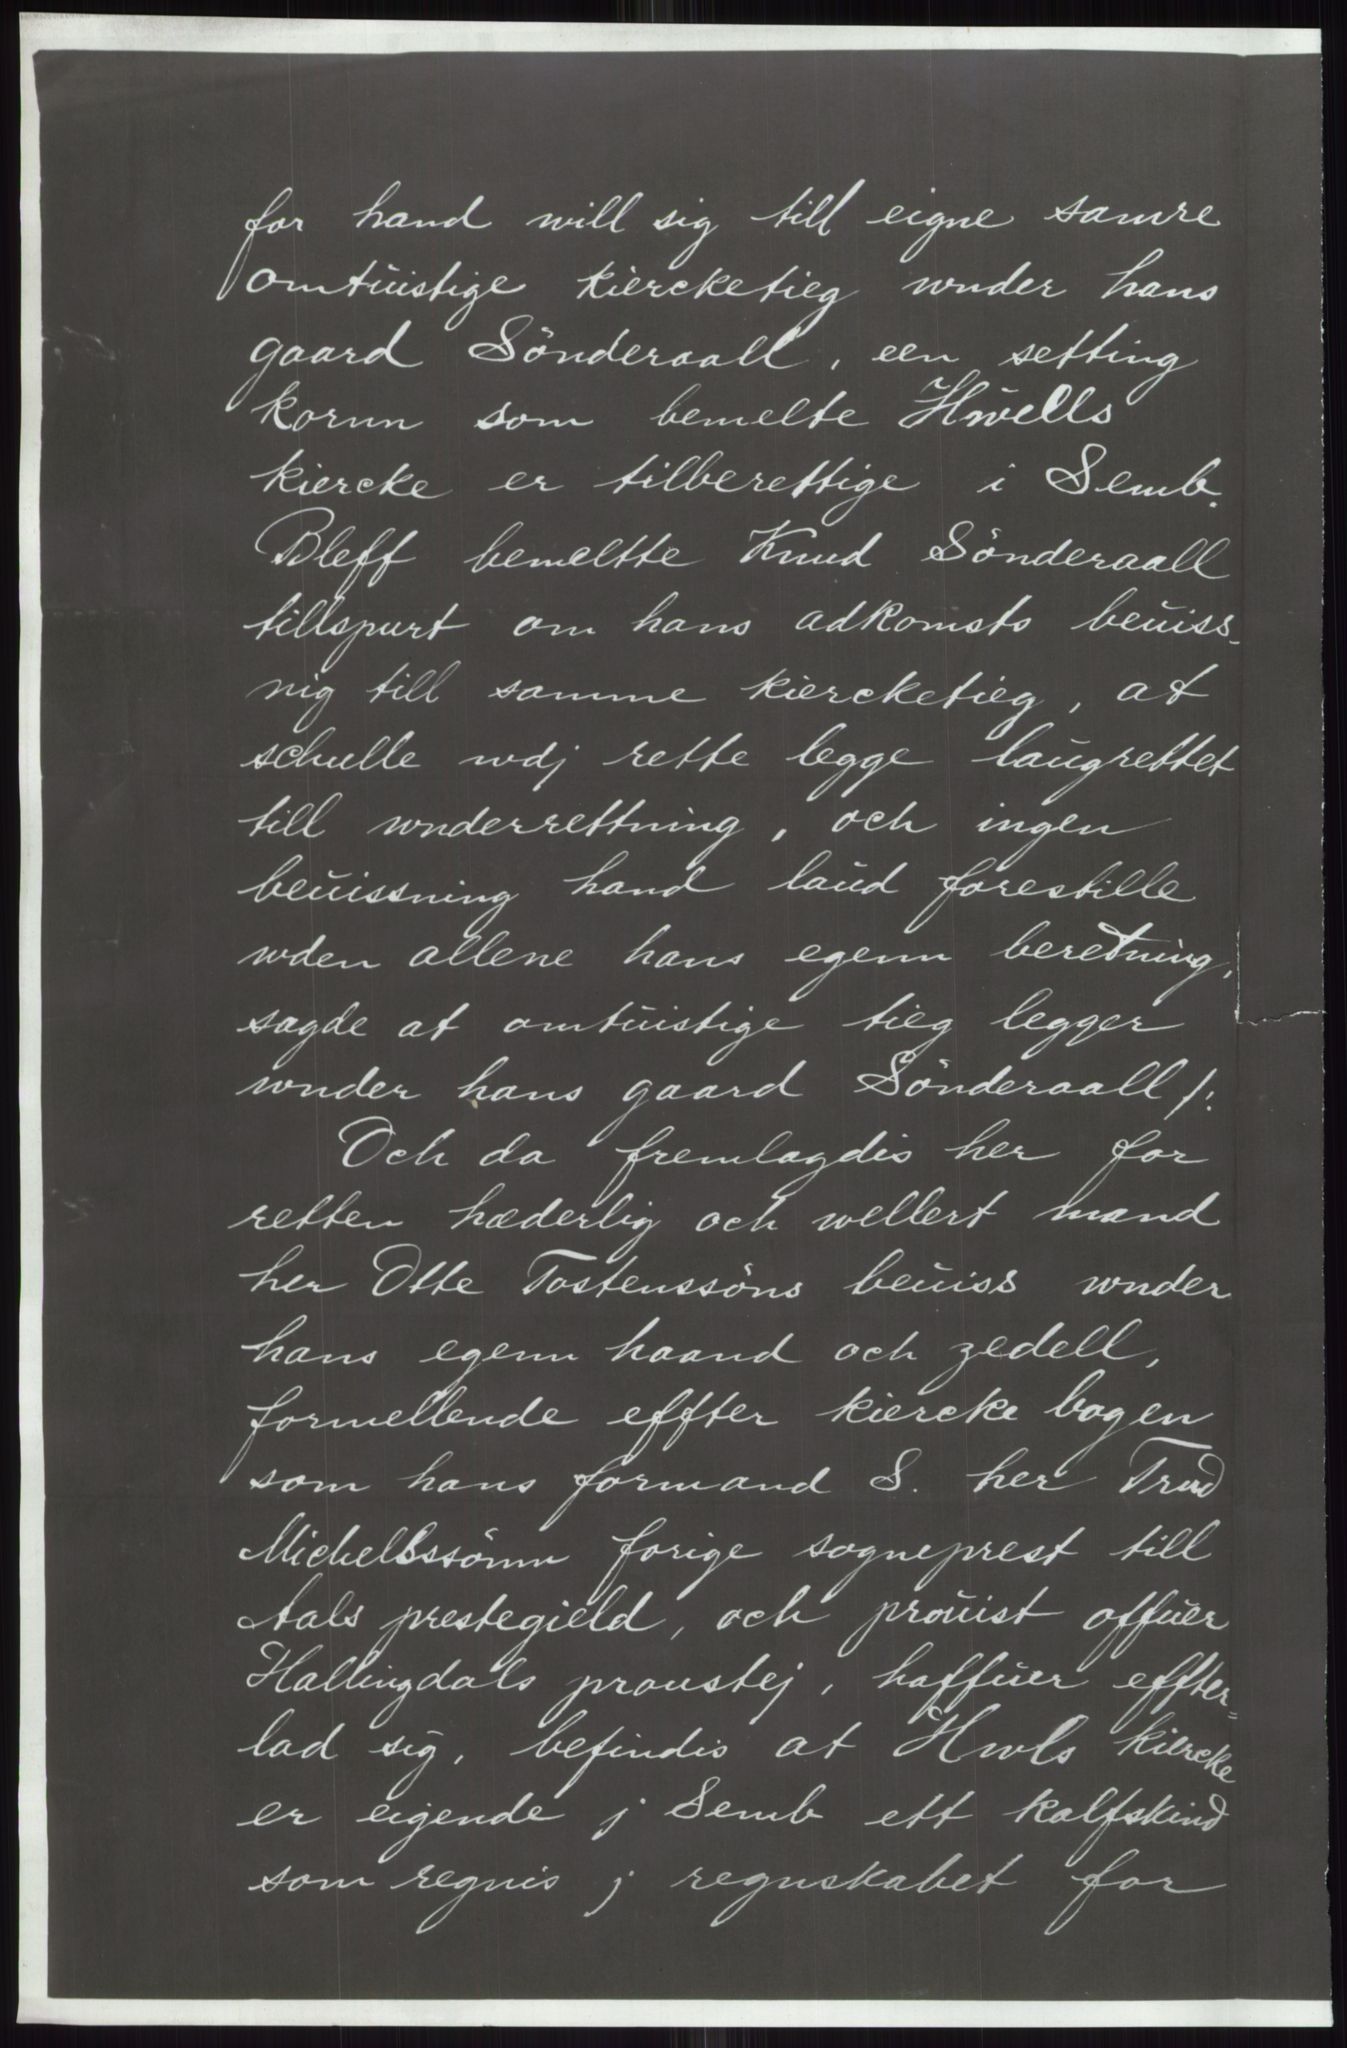 for hand will sig till eigne samre
omtüistige kiercketieg wnder hans
gaard Sönderaall, een setting
kornn som bemelte Hwells
kiercke er tilberettige i Semb.
Bleff bemeltte Knud Sönderaall
tillspurt om hans adkomsts beüiss-
nig till samme kiercketieg, at
schulle wdj rette legge laugrettet
till wnderrettning, och ingen
beüissning hand laüd forestille
wden allene hans egenn beretning,
sagde at omtüistige tieg legger
wnder hans gaard Sönderaall /:
Och da fremlagdis her for
retten hæderlig och wellert mand
her Otte Tostenssöns beüiss wnder
hans egenn haand och zedell,
formellende effter kiercke bogen
som hans formand S. her Trud
Michellssönn forige sogneprest till
Aals prestegield, och proüist offüer
Hallingdals proustej, haffüer effter=
lad sig, befindis at Hwls kiercke
er eigende j Semb ett kalfskind
som regnis j regnskabet for